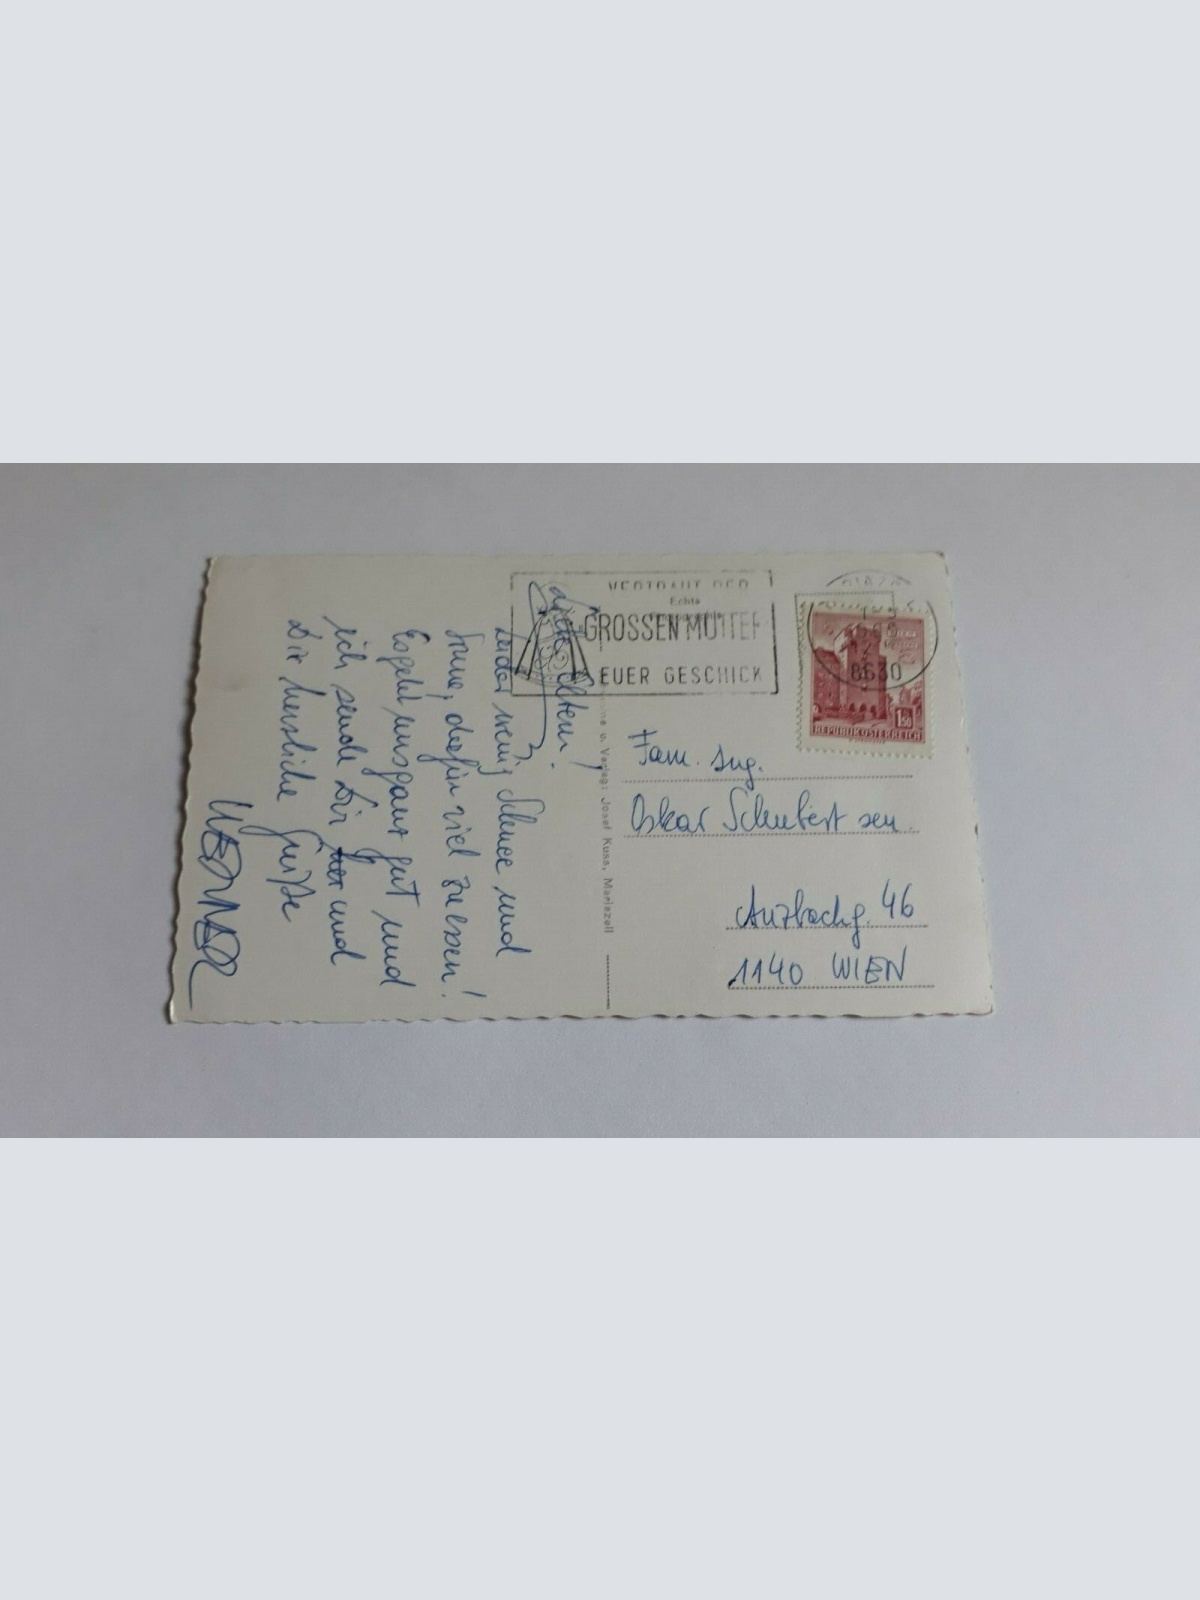 Liebe Eltern!
Leider wenig Schnee und
Sonne, dafür viel zu essen!
Es geht uns ganz gut und
ich sende Dir her und
Dir herzliche Grüße
WERNER
VERTRAUT DER
GROSSEN MUTTER
EUER GESCHICK
Echte
8630
1.50
REPUBLIK ÖSTERREICH
u. Verlag: Josef Kuss, Mariazell
Fam. Ing.
Oskar Schubert sen.
Anzbachg. 46
1140 WIEN